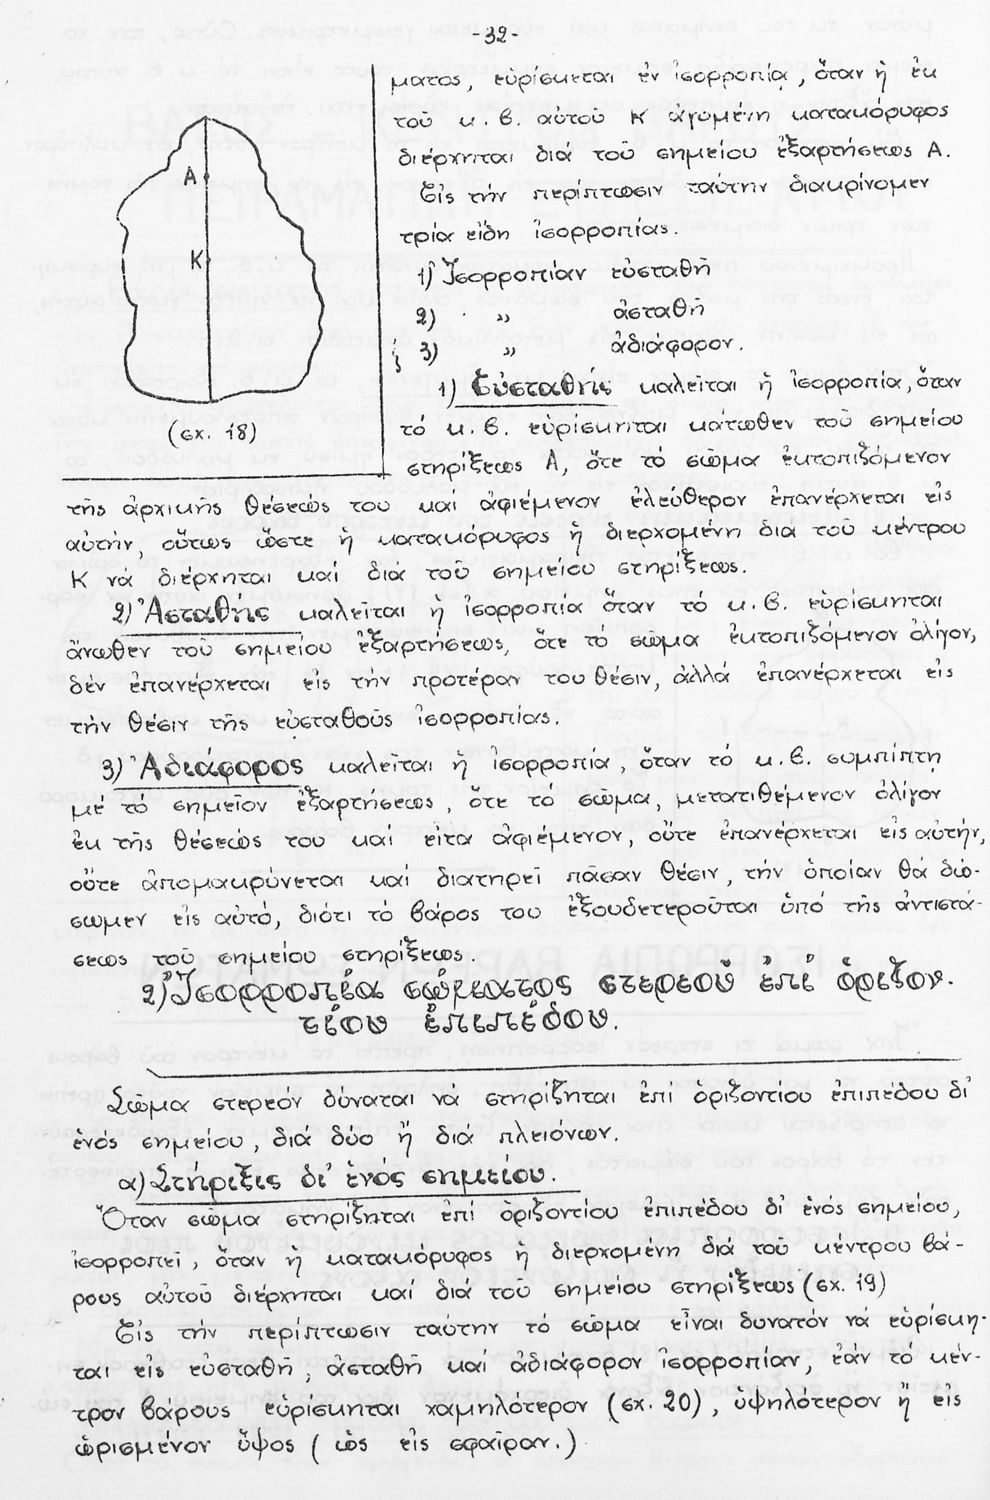 -32-
ματος, εὑρίσκεται ἐν ἰσορροπίᾳ, ὅταν ἡ ἐκ
τοῦ κ.β. αὐτοῦ Κ ἀγομένη κατακόρυφος
διέρχηται διά τοῦ σημείου ἐξαρτήσεως Α.
Εἰς τήν περίπτωσιν ταύτην διακρίνομεν
τρία εἴδη ἰσορροπίας.
1) Ἰσορροπίαν εὐσταθῆ
2) " ἀσταθῆ
3) " ἀδιάφορον.
Α
Κ
(σχ. 18)
1) Εὐσταθής καλεῖται ἡ ἰσορροπία, ὅταν
τό κ.β. εὑρίσκηται κάτωθεν τοῦ σημείου
στηρίξεως Α, ὅτε τό σῶμα ἐκτοπιζόμενον
τῆς ἀρχικῆς θέσεώς του καί ἀφιέμενον ἐλεύθερον ἐπανέρχεται εἰς
αὐτήν, οὕτως ὥστε ἡ κατακόρυφος ἡ διερχομένη διά τοῦ κέντρου
Κ νά διέρχηται καί διά τοῦ σημείου στηρίξεως.
2) Ἀσταθής καλεῖται ἡ ἰσορροπία ὅταν τό κ.β. εὑρίσκηται
ἄνωθεν τοῦ σημείου ἐξαρτήσεως, ὅτε τό σῶμα ἐκτοπιζόμενον ὀλίγον,
δέν ἐπανέρχεται εἰς τήν προτέραν του θέσιν, ἀλλά ἐπανέρχεται εἰς
τήν θέσιν τῆς εὐσταθοῦς ἰσορροπίας.
3) Ἀδιάφορος καλεῖται ἡ ἰσορροπία, ὅταν τό κ.β. συμπίπτῃ
μέ τό σημεῖον ἐξαρτήσεως, ὅτε τό σῶμα, μετατιθέμενον ὀλίγον
ἐκ τῆς θέσεώς του καί εἶτα ἀφιέμενον, οὔτε ἐπανέρχεται εἰς αὐτήν,
οὔτε ἀπομακρύνεται καί διατηρεῖ πᾶσαν θέσιν, τήν ὁποίαν θά δώ-
σωμεν εἰς αὐτό, διότι τό βάρος του ἐξουδετεροῦται ὑπό τῆς ἀντιστά-
σεως τοῦ σημείου στηρίξεως.
2) Ἰσορροπία σώματος στερεοῦ ἐπί ὁριζον-
τίου ἐπιπέδου.
Σῶμα στερεόν δύναται νά στηρίζηται ἐπί ὁριζοντίου ἐπιπέδου δι'
ἑνός σημείου, διά δύο ἤ διά πλειόνων.
α) Στήριξις δι' ἑνός σημείου.
Ὅταν σῶμα στηρίζηται ἐπί ὁριζοντίου ἐπιπέδου δι' ἑνός σημείου,
ἰσορροπεῖ, ὅταν ἡ κατακόρυφος ἡ διερχομένη διά τοῦ κέντρου βά-
ρους αὐτοῦ διέρχηται καί διά τοῦ σημείου στηρίξεως (σχ. 19)
Εἰς τήν περίπτωσιν ταύτην τό σῶμα εἶναι δυνατόν νά εὑρίσκη-
ται εἰς εὐσταθῆ, ἀσταθῆ καί ἀδιάφορον ἰσορροπίαν, ἐάν τό κέν-
τρον βάρους εὑρίσκηται χαμηλότερον (σχ. 20), ὑψηλότερον ἤ εἰς
ὡρισμένον ὕψος (ὡς εἰς σφαῖραν.)